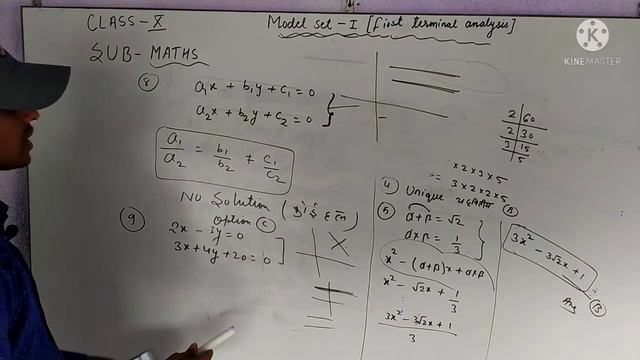 CLASS-X
Model set-I [First terminal analysis]
KINEMASTER
SUB- MATHS
8
a₁x + b₁y + c₁ = 0
a₂x + b₂y + c₂ = 0
a₁/a₂ = b₁/b₂ ≠ c₁/c₂
No Solution
option C
9
2x - 3y = 0
3x + 4y + 20 = 0
2 | 60
2 | 30
3 | 15
5
= × 2 × 3 × 5
3 × 2 × 2 × 5
4 Unique
A
5 α + β = √2
α × β = 1/3
x² - (α+β)x + αβ
x² - √2x + 1/3
3x² - 3√2x + 1
3
3x² - 3√2x + 1
Ans B